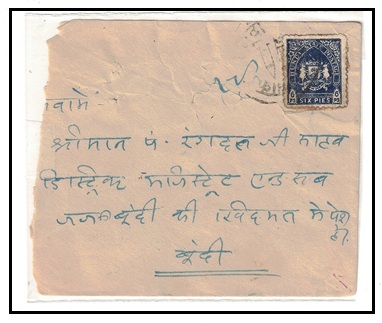 SIX PIES
श्रीमान पं. रंगदत्त जी साहब
डिस्ट्रिक मजिस्ट्रेट एण्ड सब
जज बूंदी की खिदमत मे पेश
हो.
बूंदी